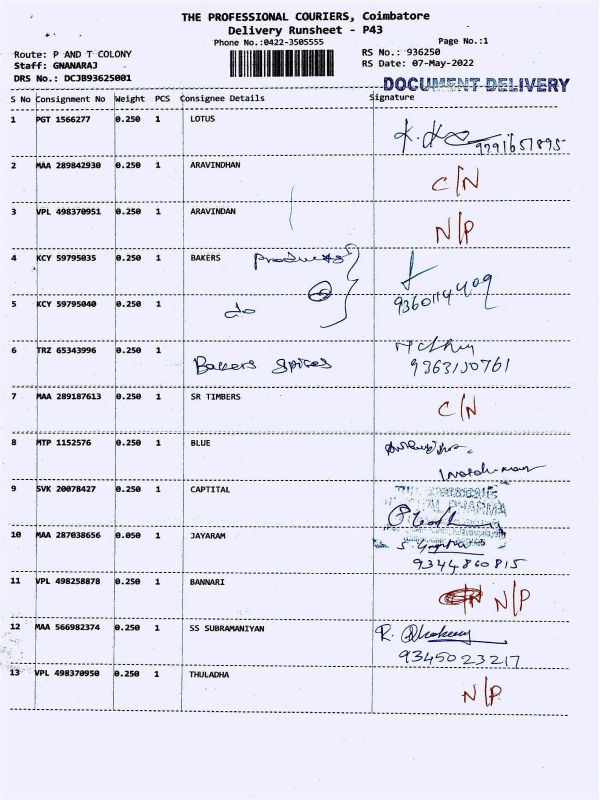 THE PROFESSIONAL COURIERS, Coimbatore
Delivery Runsheet - P43
Phone No.:0422-3505555
Page No.:1
Route: P AND T COLONY
RS No.: 936250
Staff: GNANARAJ
RS Date: 07-May-2022
DRS No.: DCJB93625001
DOCUMENT DELIVERY
S No Consignment No Weight PCS Consignee Details Signature
1 PGT 1566277 0.250 1 LOTUS
9791651895
2 MAA 289842930 0.250 1 ARAVINDHAN C/N
3 VPL 498370951 0.250 1 ARAVINDAN N/P
4 KCY 59795035 0.250 1 BAKERS products
5 KCY 59795040 0.250 1 do 9360114409
6 TRZ 65343996 0.250 1 Bakers spices 9363130761
7 MAA 289187613 0.250 1 SR TIMBERS C/N
8 MTP 1152576 0.250 1 BLUE
9 SVK 20078427 0.250 1 CAPTITAL
10 MAA 287038656 0.050 1 JAYARAM
9344860815
11 VPL 498258878 0.250 1 BANNARI N/P
12 MAA 566982374 0.250 1 SS SUBRAMANIYAN
9345023217
13 VPL 498370950 0.250 1 THULADHA N/P